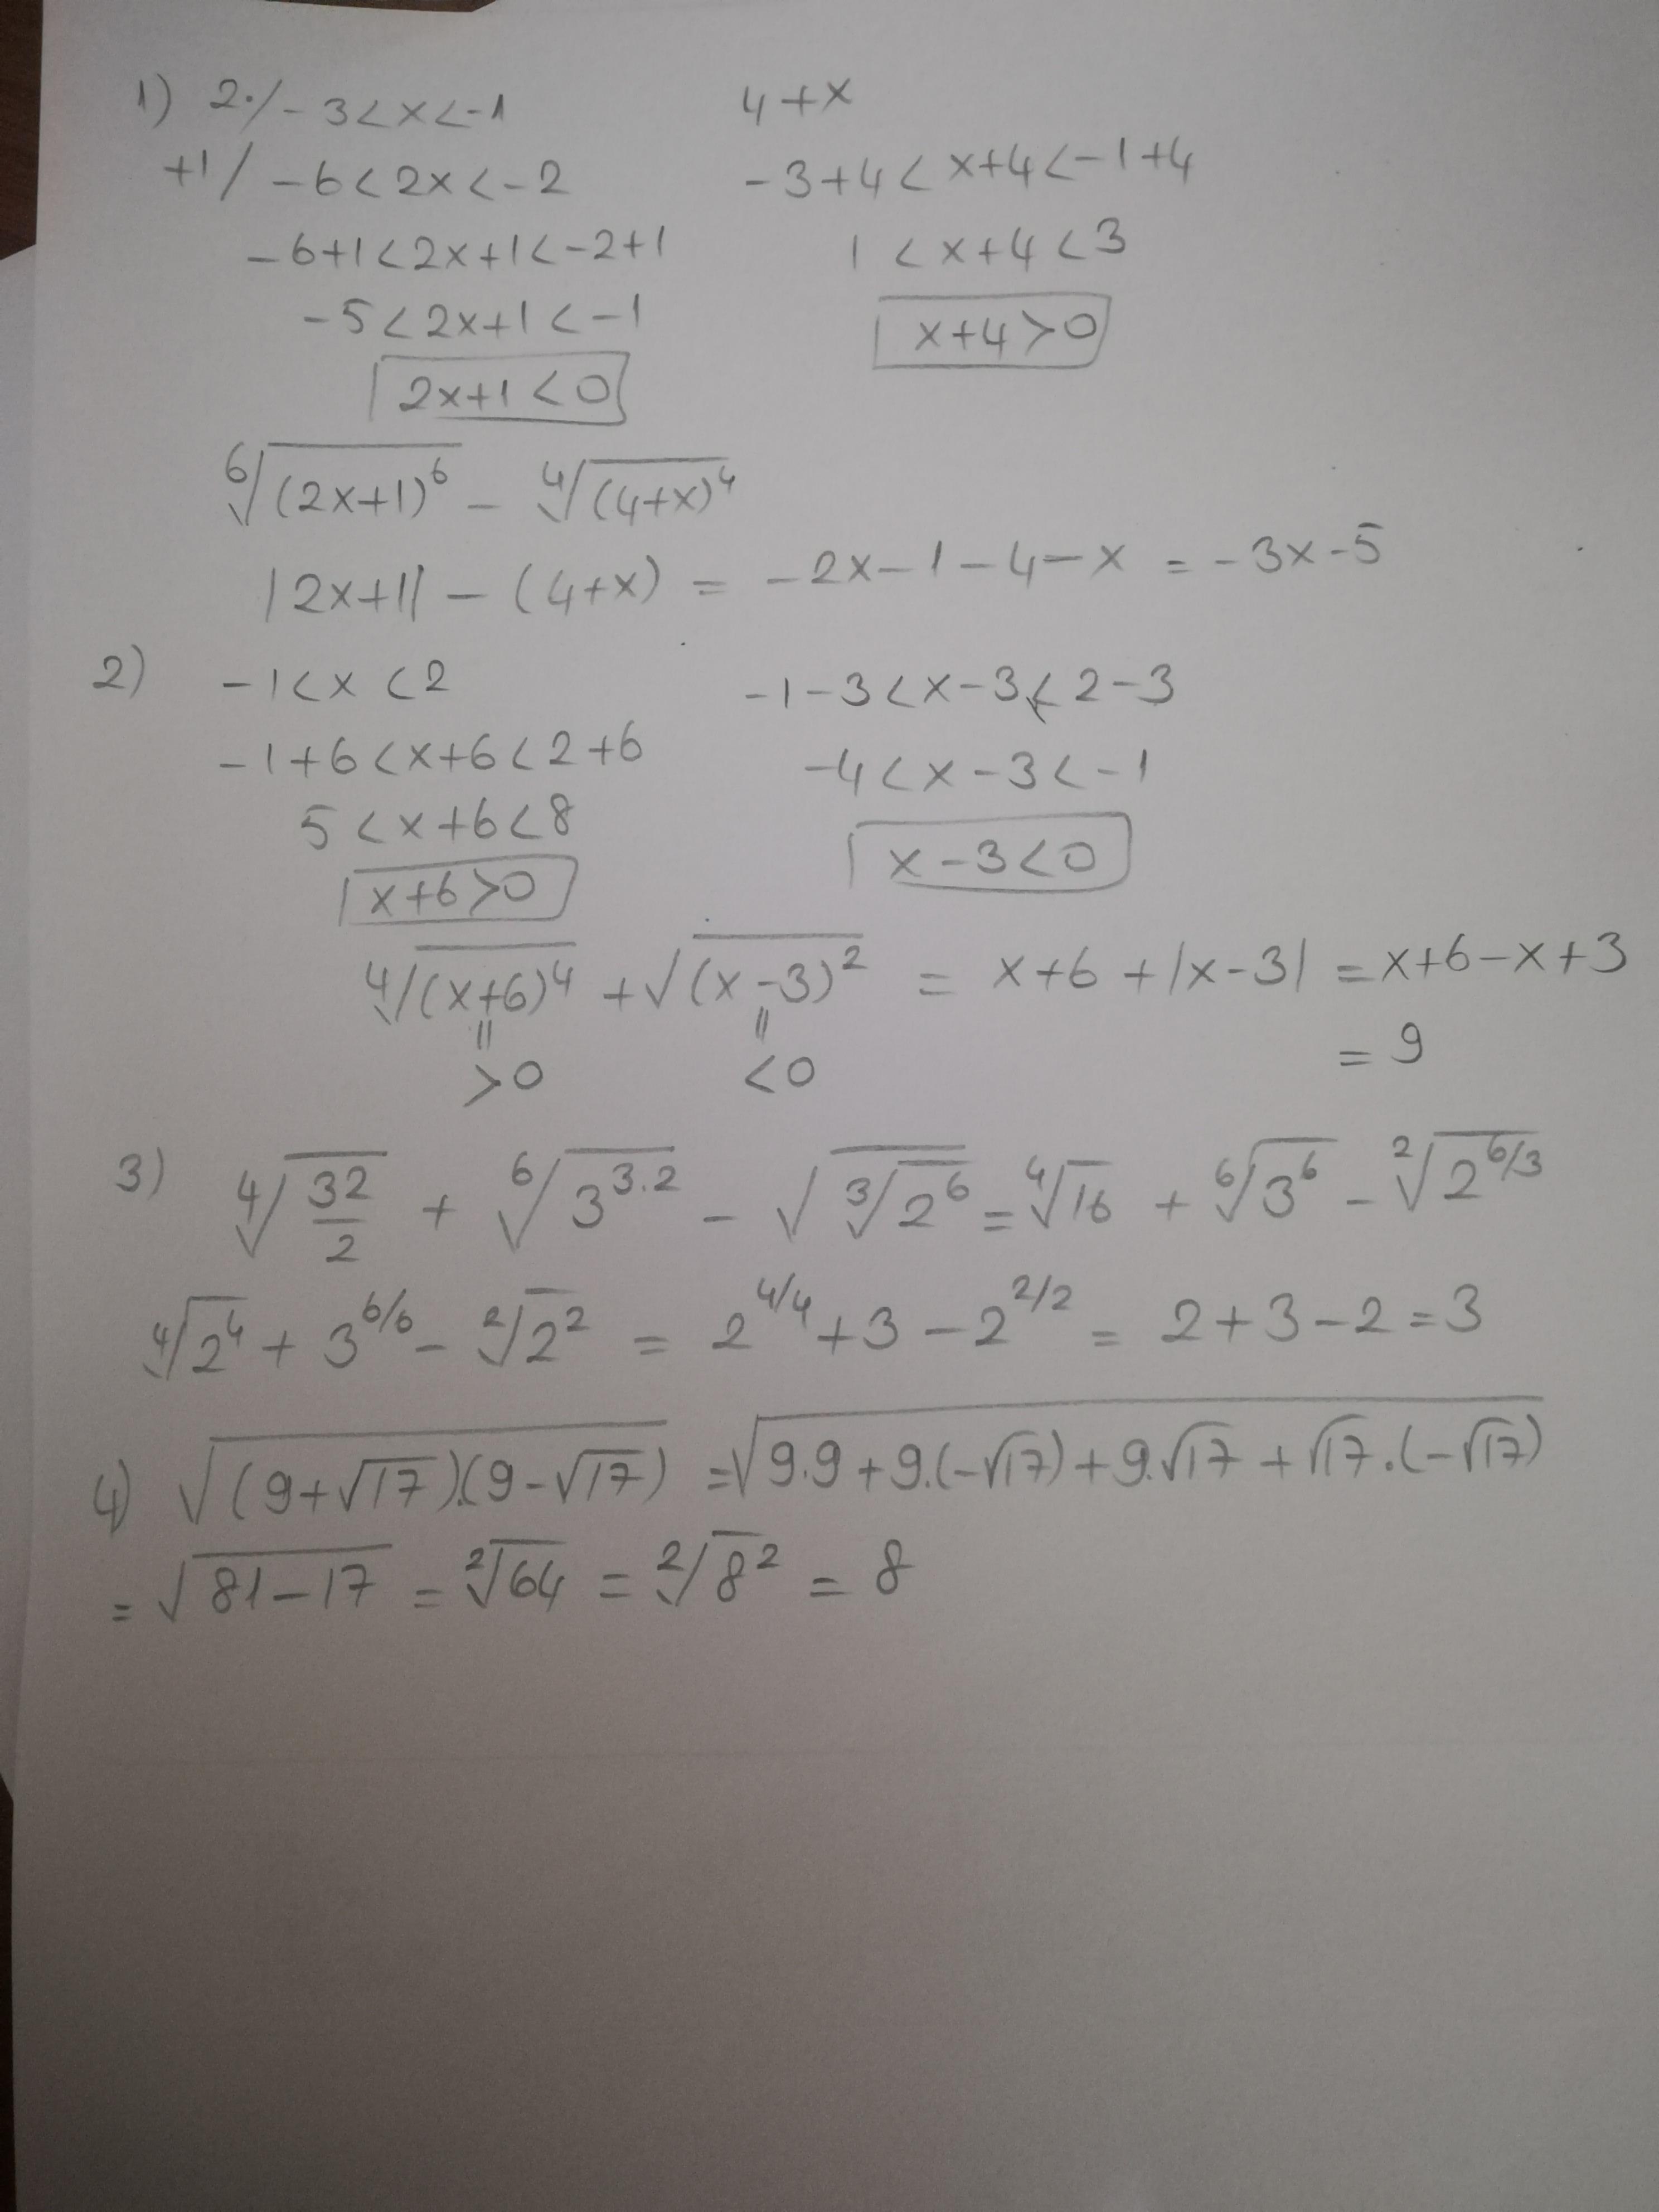 1) 2·/ -3<x<-1
+1/ -6<2x<-2
-6+1<2x+1<-2+1
-5<2x+1<-1
2x+1<0
4+x
-3+4<x+4<-1+4
1<x+4<3
x+4>0
⁶√(2x+1)⁶ - ⁴√(4+x)⁴
|2x+1| - (4+x) = -2x-1-4-x = -3x-5
2) -1<x<2
-1+6<x+6<2+6
5<x+6<8
x+6>0
-1-3<x-3<2-3
-4<x-3<-1
x-3<0
⁴√(x+6)⁴ + √(x-3)² = x+6+|x-3| = x+6-x+3
= 9
>0 <0
3) ⁴√(32/2) + ⁶√3^(3·2) - √(³√2⁶) = ⁴√16 + ⁶√3⁶ - ²√2^(6/3)
⁴√2⁴ + 3^(6/6) - ²√2² = 2^(4/4) + 3 - 2^(2/2) = 2+3-2 = 3
4) √((9+√17).(9-√17)) = √(9.9+9.(-√17)+9.√17+√17.(-√17))
= √(81-17) = ²√64 = ²√8² = 8